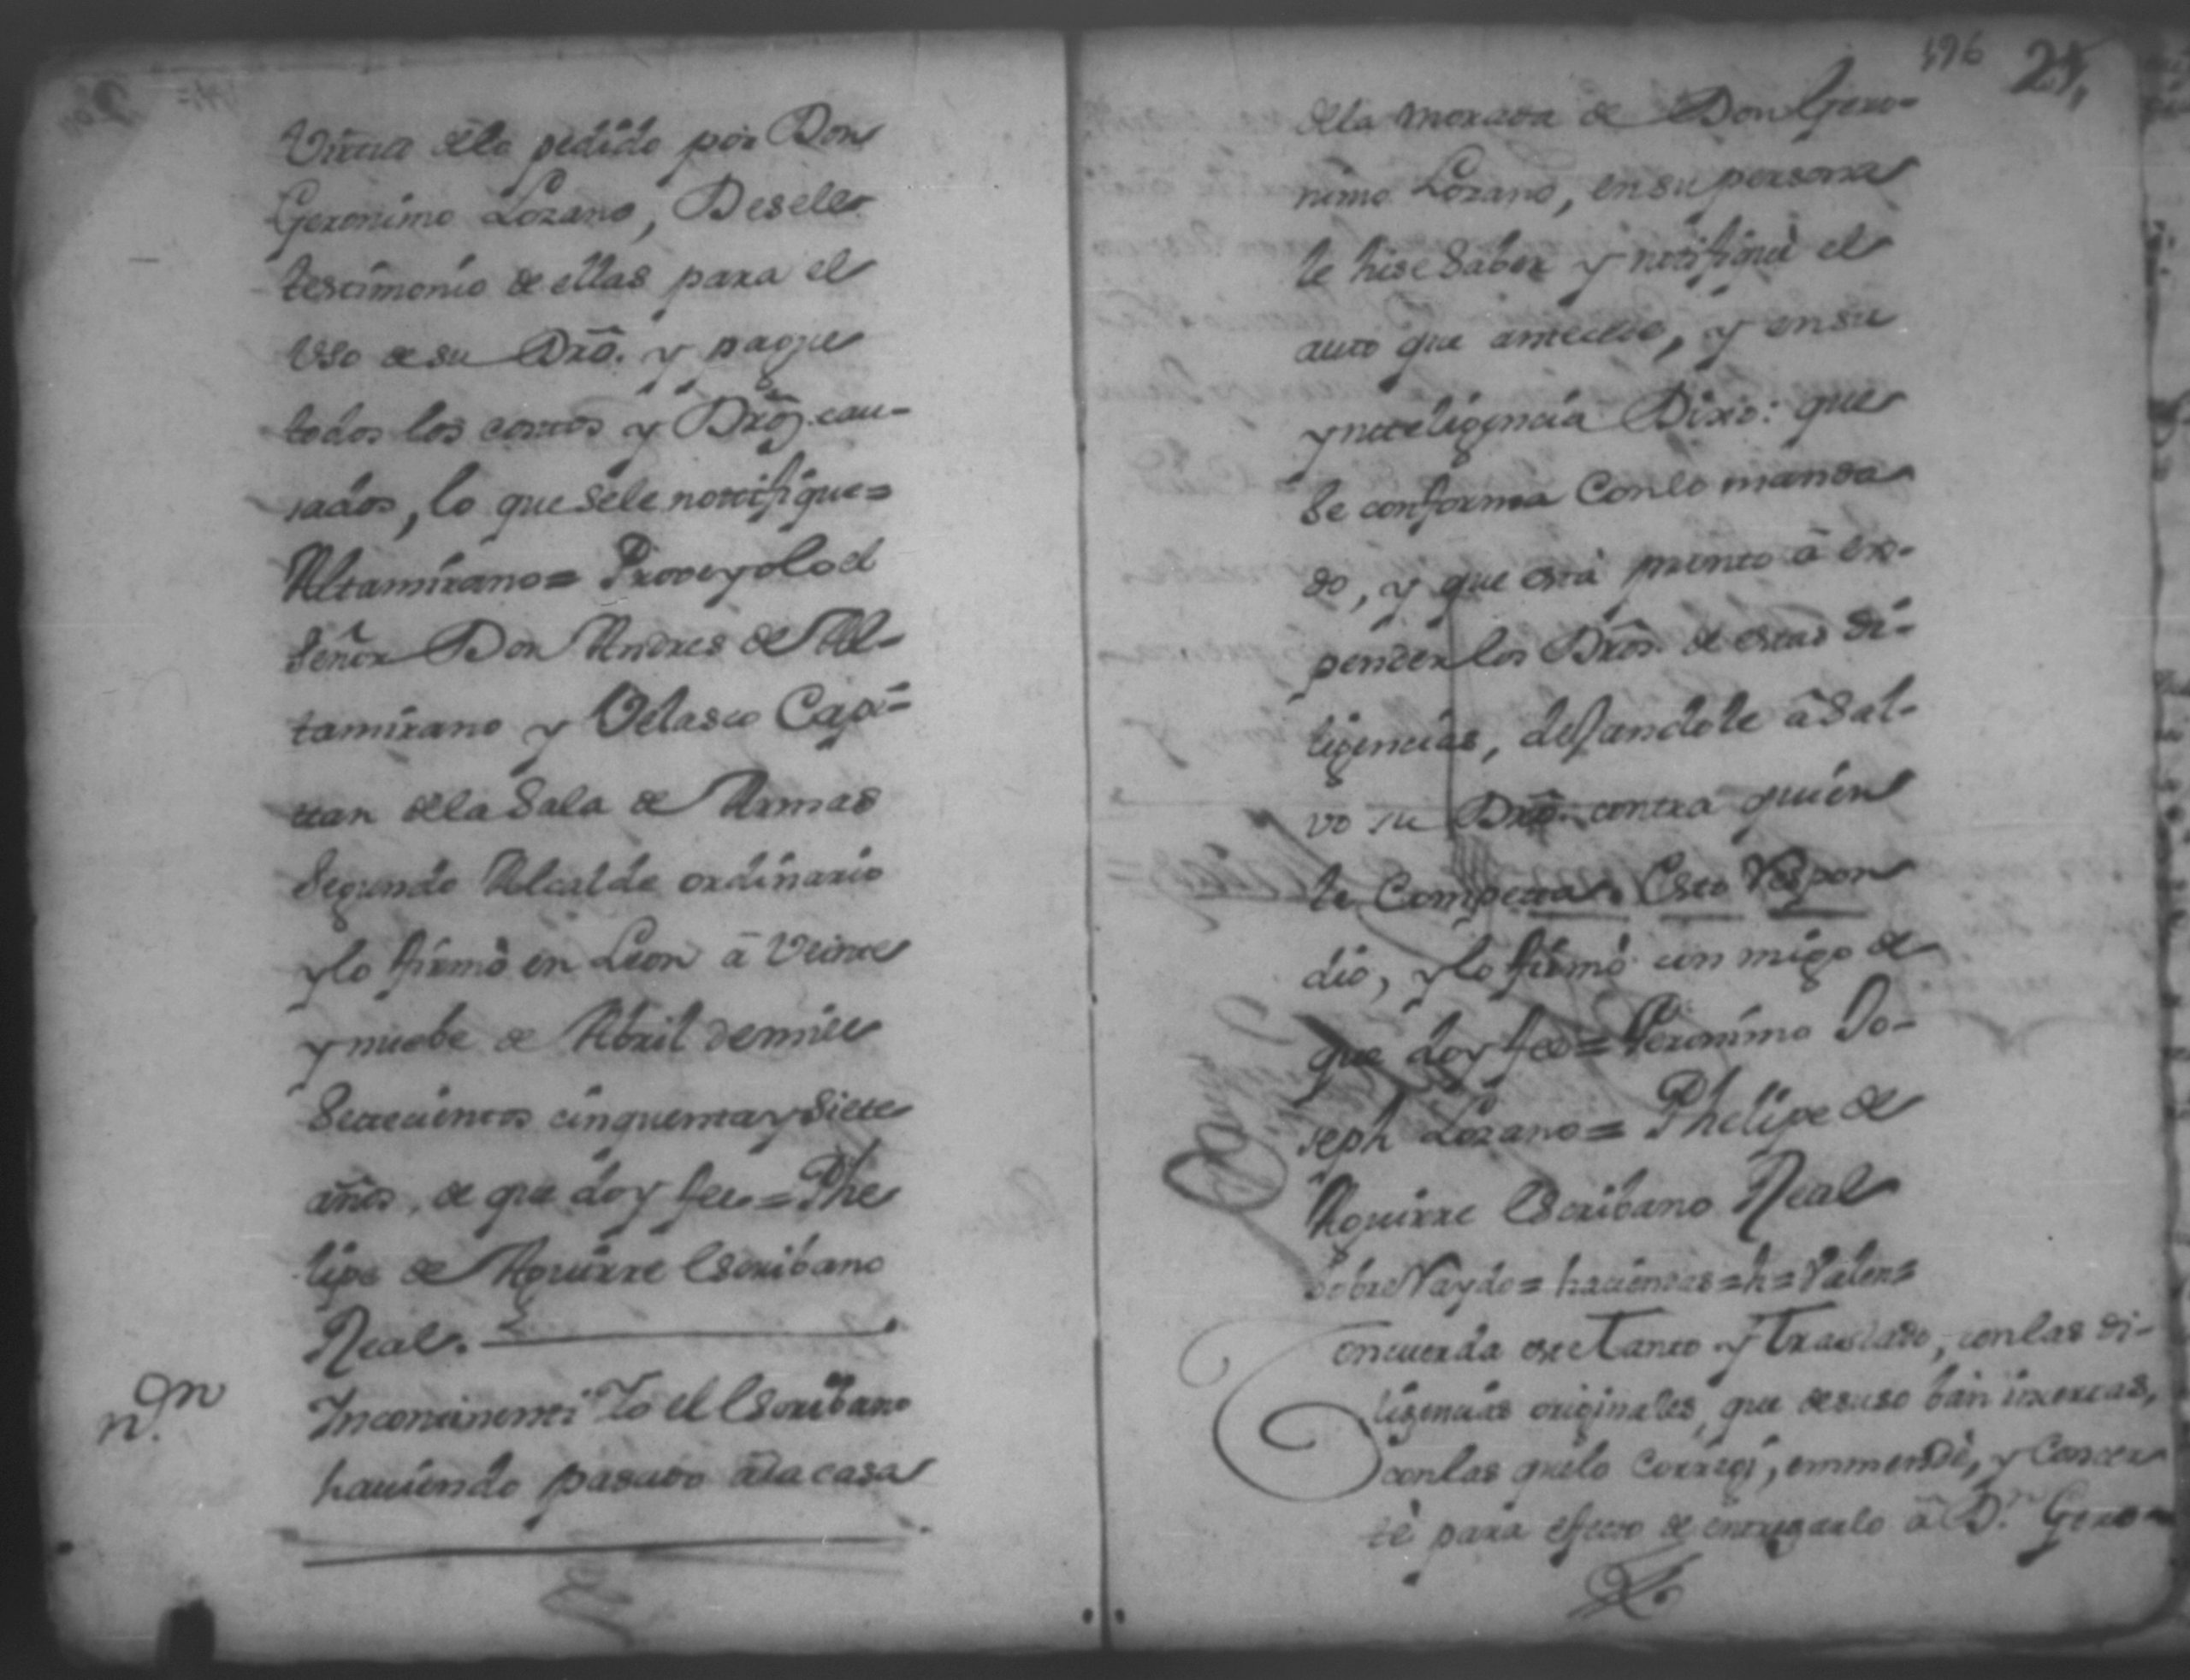 Virtud dlo pedido por Don
Geronimo Lozano, Desele
testimonio de ellas para el
Uso de su Dro. y pague
todos los costos y Dros. cau-
sados, lo que sele notifique=
Altamirano= Proveyolo el
Señor Don Andres de Al-
tamirano y Velasco Capi=
tan dela Sala de Armas
Segundo Alcalde ordinario
ylo firmò en Leon â Veinte
y nuebe de Abril demill
Settecientos cinquenta y Siete
años, de que doy fee= Phe
lipe de Aguirre Escribano
Real.
Incontinenti Yo el Escribano
haviendo pasado âla casa
n.on
196 21,
dela morada de Don Gero-
nimo Lozano, en su persona
le hise Saber y notifiquè el
auto que antecede, y en su
ynteligencia Dixo: que
Se conforma Con lo manda
do, y que està pronto â ex-
pender los Dros. de estas di-
ligencias, dejandole â Sal-
vo su Dro. contra quien
le Competa. Esto Respon
diò, y lo firmò con migo de
que doy fee= Geronimo Jo-
seph Lozano= Phelipe de
Aguirre Escribano Real
Sobre Raydo= haciendas=h= Valen=
Concuerda este Tanto y Traslado, con las di-
ligencias originales, que desuso ban incertas,
con las quelo Corregi, emmendè, y Concer
tè para efecto de entregarlo â D.n Gero-